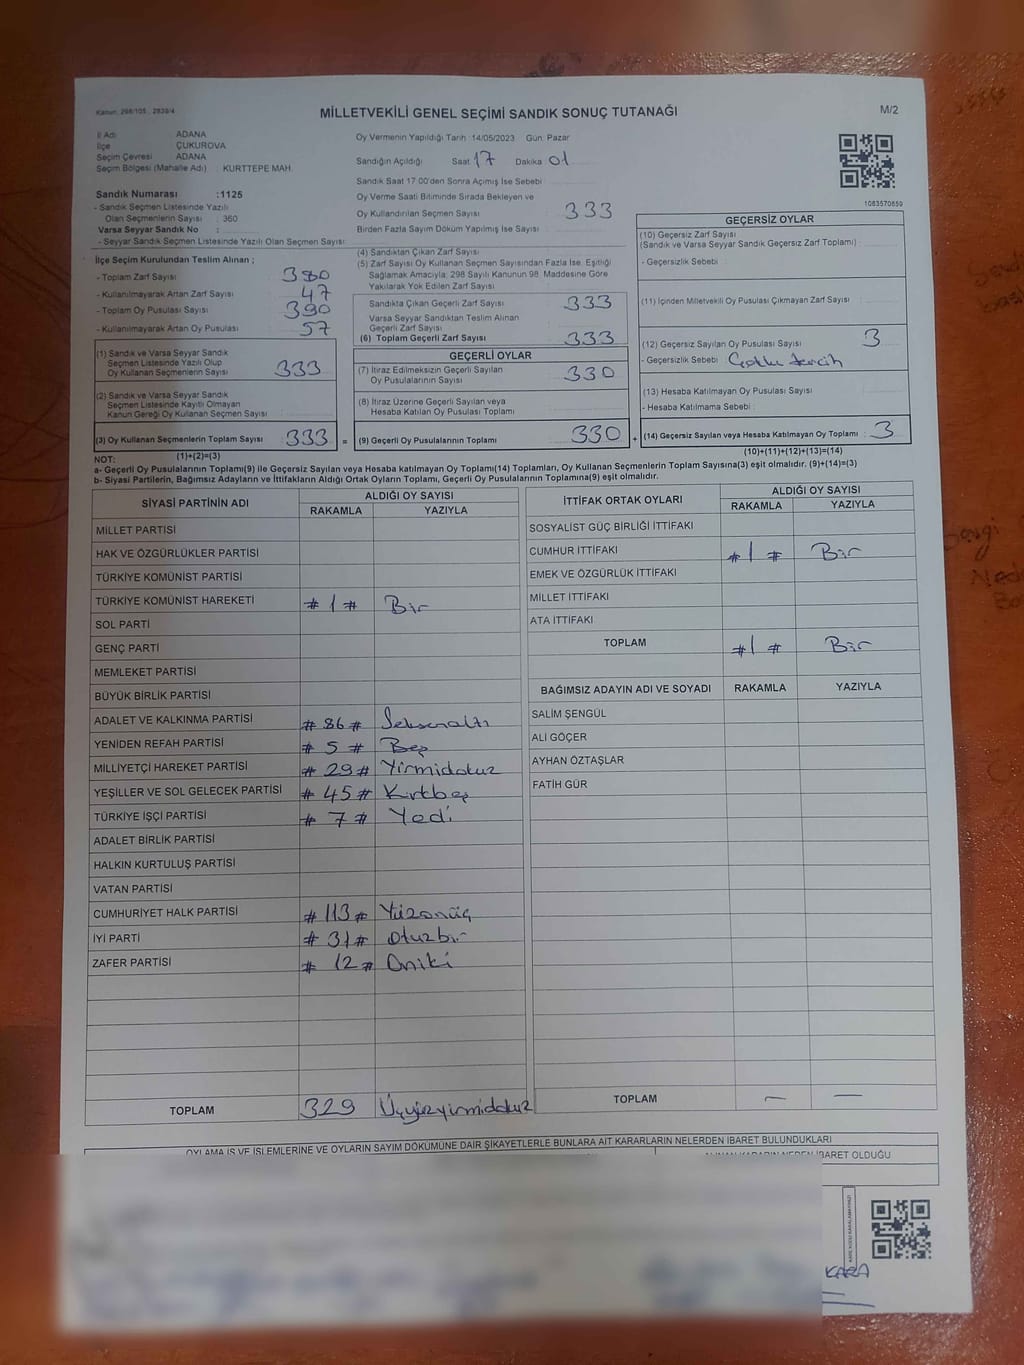 Kanun: 298/105 , 2839/4
MİLLETVEKİLİ GENEL SEÇİMİ SANDIK SONUÇ TUTANAĞI
M/2
İl Adı : ADANA
İlçe : ÇUKUROVA
Seçim Çevresi : ADANA
Seçim Bölgesi (Mahalle Adı) : KURTTEPE MAH.
Sandık Numarası :1125
- Sandık Seçmen Listesinde Yazılı
Olan Seçmenlerin Sayısı : 360
Varsa Seyyar Sandık No :
- Seyyar Sandık Seçmen Listesinde Yazılı Olan Seçmen Sayısı:
Oy Vermenin Yapıldığı Tarih :14/05/2023 Gün: Pazar
Sandığın Açıldığı Saat 17 Dakika 01
Sandık Saat 17:00'den Sonra Açılmış İse Sebebi
Oy Verme Saati Bitiminde Sırada Bekleyen ve
Oy Kullandırılan Seçmen Sayısı : 333
Birden Fazla Sayım Döküm Yapılmış İse Sayısı :
1083570859
İlçe Seçim Kurulundan Teslim Alınan ;
- Toplam Zarf Sayısı : 380
- Kullanılmayarak Artan Zarf Sayısı : 47
- Toplam Oy Pusulası Sayısı : 390
- Kullanılmayarak Artan Oy Pusulası : 57
(1) Sandık ve Varsa Seyyar Sandık
Seçmen Listesinde Yazılı Olup
Oy Kullanan Seçmenlerin Sayısı : 333
(2) Sandık ve Varsa Seyyar Sandık
Seçmen Listesinde Kayıtlı Olmayan
Kanun Gereği Oy Kullanan Seçmen Sayısı :
(3) Oy Kullanan Seçmenlerin Toplam Sayısı : 333 =
(1)+(2)=(3)
(4) Sandıktan Çıkan Zarf Sayısı
(5) Zarf Sayısı Oy Kullanan Seçmen Sayısından Fazla İse, Eşitliği
Sağlamak Amacıyla; 298 Sayılı Kanunun 98. Maddesine Göre
Yakılarak Yok Edilen Zarf Sayısı
Sandıkta Çıkan Geçerli Zarf Sayısı : 333
Varsa Seyyar Sandıktan Teslim Alınan
Geçerli Zarf Sayısı :
(6) Toplam Geçerli Zarf Sayısı : 333
GEÇERLİ OYLAR
(7) İtiraz Edilmeksizin Geçerli Sayılan
Oy Pusulalarının Sayısı : 330
(8) İtiraz Üzerine Geçerli Sayılan veya
Hesaba Katılan Oy Pusulası Toplamı :
(9) Geçerli Oy Pusulalarının Toplamı : 330 +
GEÇERSİZ OYLAR
(10) Geçersiz Zarf Sayısı
(Sandık ve Varsa Seyyar Sandık Geçersiz Zarf Toplamı) :
- Geçersizlik Sebebi :
(11) İçinden Milletvekili Oy Pusulası Çıkmayan Zarf Sayısı :
(12) Geçersiz Sayılan Oy Pusulası Sayısı : 3
- Geçersizlik Sebebi : Çoklu tercih
(13) Hesaba Katılmayan Oy Pusulası Sayısı :
- Hesaba Katılmama Sebebi :
(14) Geçersiz Sayılan veya Hesaba Katılmayan Oy Toplamı : 3
(10)+(11)+(12)+(13)=(14)
NOT:
a- Geçerli Oy Pusulalarının Toplamı(9) ile Geçersiz Sayılan veya Hesaba katılmayan Oy Toplamı(14) Toplamları, Oy Kullanan Seçmenlerin Toplam Sayısına(3) eşit olmalıdır. (9)+(14)=(3)
b- Siyasi Partilerin, Bağımsız Adayların ve İttifakların Aldığı Ortak Oyların Toplamı, Geçerli Oy Pusulalarının Toplamına(9) eşit olmalıdır.
SİYASİ PARTİNİN ADI ALDIĞI OY SAYISI
RAKAMLA YAZIYLA
MİLLET PARTİSİ
HAK VE ÖZGÜRLÜKLER PARTİSİ
TÜRKİYE KOMÜNİST PARTİSİ
TÜRKİYE KOMÜNİST HAREKETİ # 1 # Bir
SOL PARTİ
GENÇ PARTİ
MEMLEKET PARTİSİ
BÜYÜK BİRLİK PARTİSİ
ADALET VE KALKINMA PARTİSİ # 86 # Seksenaltı
YENİDEN REFAH PARTİSİ # 5 # Beş
MİLLİYETÇİ HAREKET PARTİSİ # 29 # Yirmidokuz
YEŞİLLER VE SOL GELECEK PARTİSİ # 45 # Kırkbeş
TÜRKİYE İŞÇİ PARTİSİ # 7 # Yedi
ADALET BİRLİK PARTİSİ
HALKIN KURTULUŞ PARTİSİ
VATAN PARTİSİ
CUMHURİYET HALK PARTİSİ # 113 # Yüzonüç
İYİ PARTİ # 31 # Otuzbir
ZAFER PARTİSİ # 12 # Oniki
TOPLAM 329 Üçyüzyirmidokuz
İTTİFAK ORTAK OYLARI ALDIĞI OY SAYISI
RAKAMLA YAZIYLA
SOSYALİST GÜÇ BİRLİĞİ İTTİFAKI
CUMHUR İTTİFAKI # 1 # Bir
EMEK VE ÖZGÜRLÜK İTTİFAKI
MİLLET İTTİFAKI
ATA İTTİFAKI
TOPLAM # 1 # Bir
BAĞIMSIZ ADAYIN ADI VE SOYADI RAKAMLA YAZIYLA
SALİM ŞENGÜL
ALİ GÖÇER
AYHAN ÖZTAŞLAR
FATİH GÜR
TOPLAM — —
OYLAMA İŞ VE İŞLEMLERİNE VE OYLARIN SAYIM DÖKÜMÜNE DAİR ŞİKAYETLERLE BUNLARA AİT KARARLARIN NELERDEN İBARET BULUNDUKLARI
ALINAN KARARIN NEDEN İBARET OLDUĞU
KARA